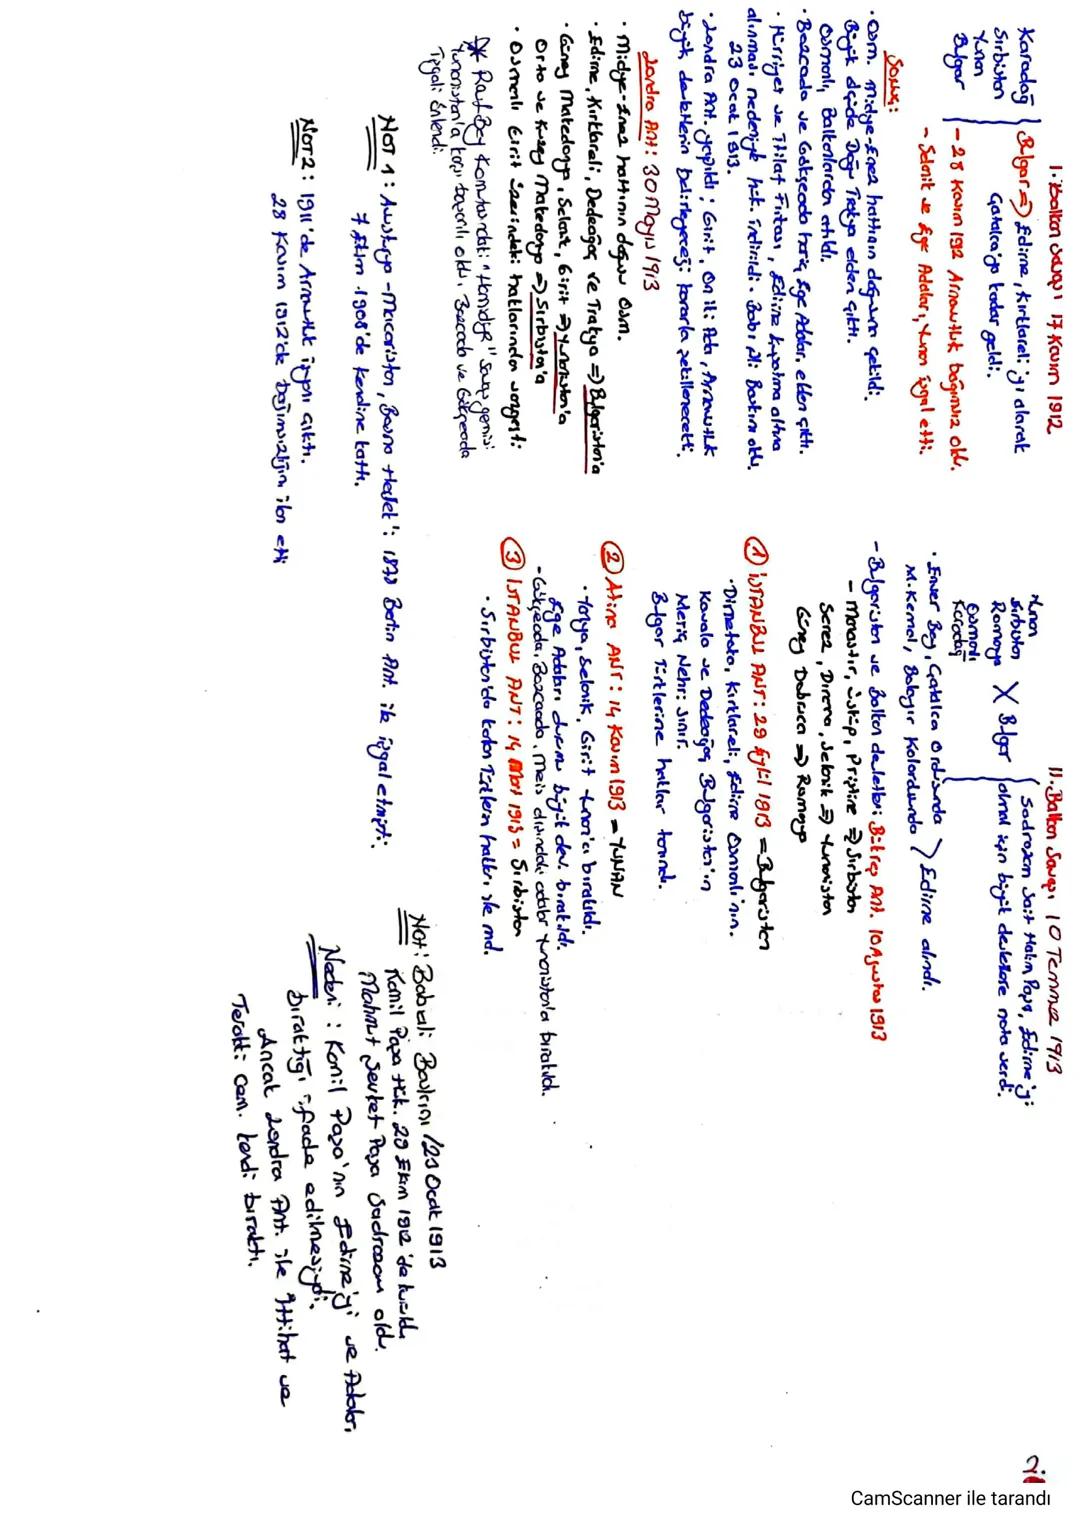 I. Balkan Savaşı 17 Kasım 1912
Karadağ
Sırbistan
Yunan
Bulgar
Bulgar => Edirne, Kırklareli'yi alarak
Çatalca'ya kadar geldi.
- 28 Kasım 1912 Arnavutluk bağımsız oldu.
- Selanik ve Ege Adaları, Yunan işgal etti.
Sonuç:
• Osm. Midye-Enez hattının doğusuna çekildi.
Büyük ölçüde Doğu Trakya elden çıktı.
Osmanlı, Balkanlardan atıldı.
• Bozcada ve Gökçeada hariç Ege Adaları, elden çıktı.
• Hürriyet ve İtilaf Fırkası, Edirne kuşatma altına
alınması nedeniyle hük. indirildi. Babı Ali Baskını oldu.
23 Ocak 1913.
• Londra Ant. yapıldı; Girit, On iki Ada, Arnavutluk
büyük devletlerin belirleyeceği kararla şekillenecekti.
Londra Ant: 30 Mayıs 1913
• Midye-Enez hattının doğusu Osm.
• Edirne, Kırklareli, Dedeağaç ve Trakya => Bulgaristan'a
• Güney Makedonya, Selanik, Girit => Yunanistan'a
Orta ve Kuzey Makedonya => Sırbistan'a
• Osmanlı Girit üzerindeki haklarından vazgeçti.
* Rauf Bey Komutandaki "Hamidiye" Savaş gemisi
Yunanistan'a karşı başarılı oldu, Bozcada ve Gökçeada
işgali önlendi.
NOT 1: Avusturya-Macaristan, Bosna Hersek'i 1878 Berlin Ant. ile işgal etmişti.
7 Ekim 1908'de kendine kattı.
NOT 2: 1911'de Arnavutluk isyanı çıktı.
28 Kasım 1912'de bağımsızlığını ilan etti
II. Balkan Savaşı 10 Temmuz 1913
Yunan
Sırbistan
Romanya X Bulgar
Osmanlı
Karadağ
Sadrazam Sait Halim Paşa, Edirne'yi
almak için büyük devletlere nota verdi.
• Enver Bey, Çatalca Ordusunda
M. Kemal, Bolayır Kolordusunda > Edirne alındı.
- Bulgaristan ve Balkan devletleri: Bükreş Ant. 10 Ağustos 1913
- Manastır, Üsküp, Priştine => Sırbistan
Serez, Dırama, Selanik => Yunanistan
Güney Dobruca => Romanya
① İSTANBUL ANT: 29 Eylül 1913 = Bulgaristan
• Dimetoka, Kırklareli, Edirne Osmanlı'nın.
Kavala ve Dedeağaç Bulgaristan'ın
Meriç Nehri sınır.
Bulgar Türklerine haklar tanındı.
② Atina ANT: 14 Kasım 1913 = YUNAN
• Yanya, Selanik, Girit Yunan'a bırakıldı.
Ege Adaları durumu büyük dev. bırakıldı.
- Gökçeada, Bozcaada, Meis dışındaki adalar Yunanistan'a bırakıldı.
③ İSTANBUL ANT: 14 Mart 1913 = Sırbistan
• Sırbistan'da kalan Türklerin hakları ile
Not: Babıali Baskını /23 Ocak 1913
Kamil Paşa Hük. 29 Ekim 1912'de kuruldu
Mahmut Şevket Paşa Sadrazam oldu.
Nedeni: Kamil Paşa'nın Edirne'yi ve Adaları,
bıraktığı ifade edilmesiydi.
Ancak Londra Ant. ile İttihat ve
Terakki Cem. kendi bıraktı.
CamScanner ile tarandı